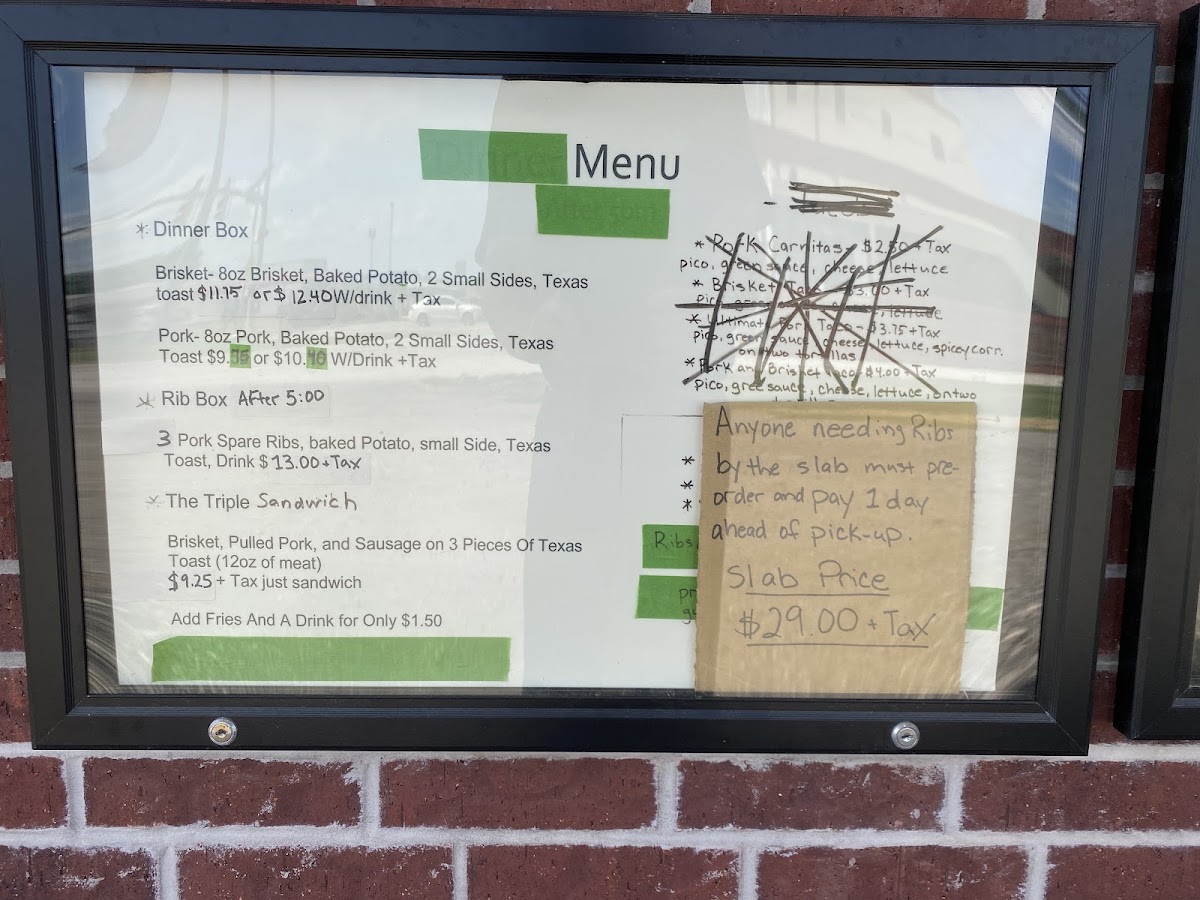 Menu
* Dinner Box
Brisket- 8oz Brisket, Baked Potato, 2 Small Sides, Texas
toast $11.75 or $ 12.40 W/drink + Tax
Pork- 8oz Pork, Baked Potato, 2 Small Sides, Texas
Toast $9. or $10. W/Drink +Tax
* Rib Box After 5:00
3 Pork Spare Ribs, baked Potato, small Side, Texas
Toast, Drink $13.00+Tax
* The Triple Sandwich
Brisket, Pulled Pork, and Sausage on 3 Pieces Of Texas
Toast (12oz of meat)
$9.25 + Tax just sandwich
Add Fries And A Drink for Only $1.50
* Pork Carnitas- $2.50 + Tax
pico, green sauce, cheese, lettuce
* Brisket + Tax
lettuce
* Ultimate Pork Taco- $3.75 + Tax
pico, green sauce, cheese, lettuce, spicey corr.
on two tortillas
* Pork and Brisket taco- $4.00 + Tax
pico, gree sauce, cheese, lettuce, on two
*
*
*
Ribs
Anyone needing Ribs
by the slab must pre-
order and pay 1 day
ahead of pick-up.
Slab Price
$29.00 + Tax